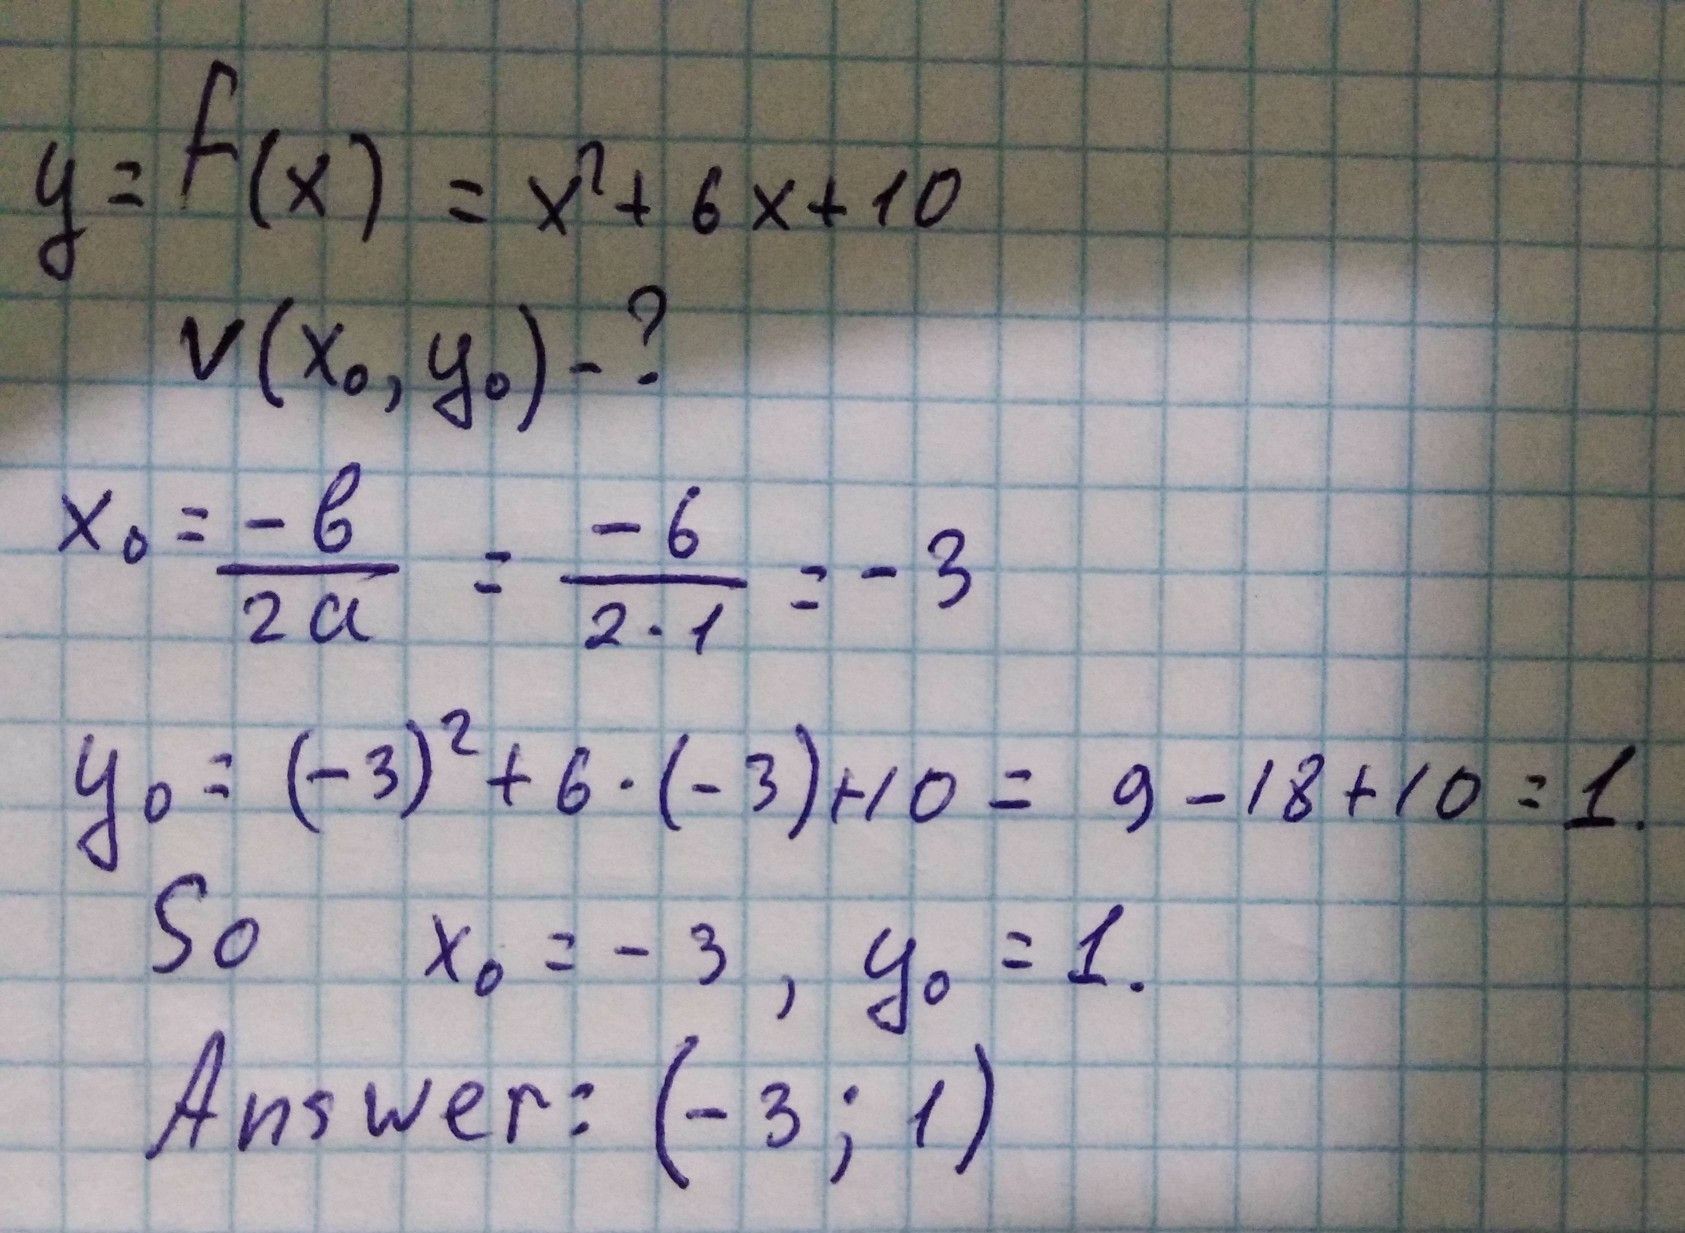 y = f(x) = x² + 6x + 10
v(x₀, y₀) - ?
x₀ = -b/2a = -6/2·1 = -3
y₀ = (-3)² + 6·(-3)+10 = 9 - 18 + 10 = 1.
So x₀ = -3, y₀ = 1.
Answer: (-3; 1)